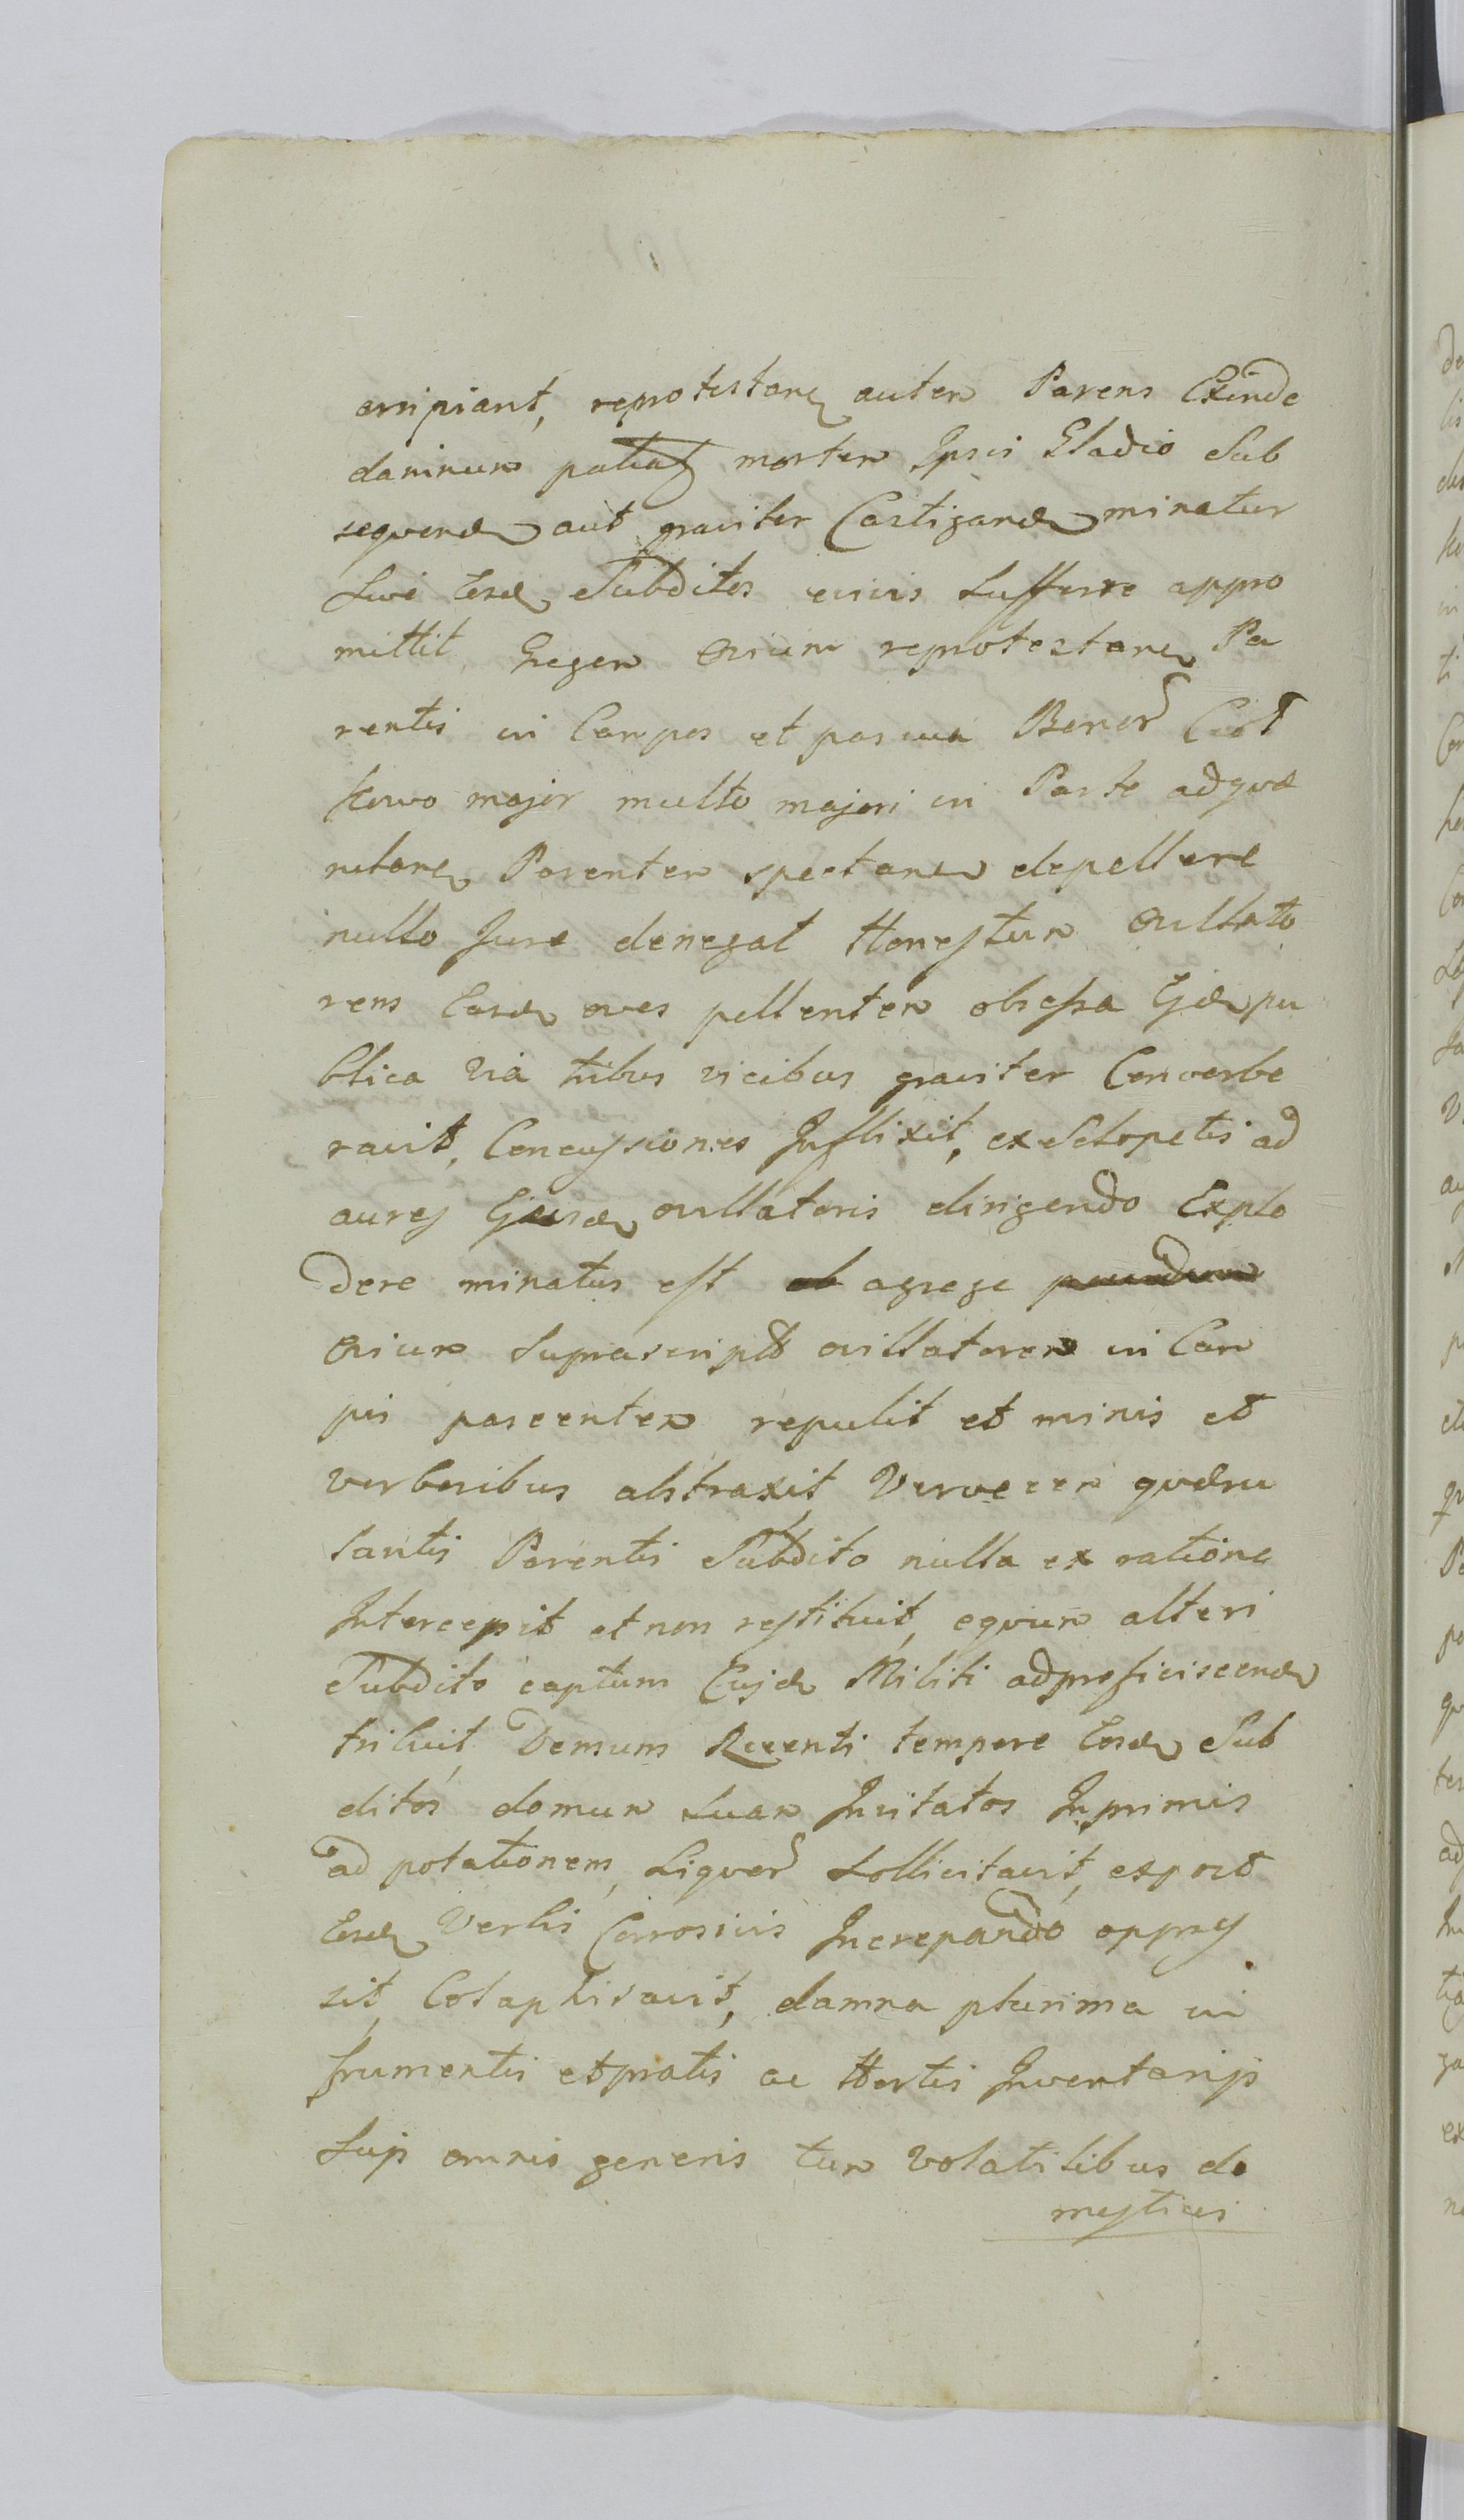 arripiant, reprotestane autem Parens Exinde
damnum patiat mortem Ipsis Gladio Sub
sequend aut graviter Castigand minatur
Sive Eosd Subditos eiuis Sufferre appro
mittit, Gregem Ovium reprotestane Pa
rentis in Campos et pascua Bonor Ciot
kowo major multo majori in Parte ad quæ
rulane Parentem spectane depellere
nullo Jure denegat Honestum ovillato
rem Easd oves pellentem obsessa Ejd pu
blica via tribus vicibus graviter Converbe
ravit, Concussiones Inflixit, ex Sclopetis ad
aures Ejusd ovillatoris dirigendo Explo
dere minatus est agrege
ovium Suprascript ovillatorem in Cam
pis pascentem repulit et minis et
verberibus abstraxit, Vervecem quæru
lantis Parentis Subdito nulla ex ratione
Intercepit et non restituit, equum alteri
Subdito captum Cujd Militi ad proficiscend
tribuit, Demum Recenti tempore Eosd Sub
ditos domum Suam Invitatos Inprimis
ad potationem Liquor Sollicitavit, expost
Eosd Verbis Corrosivis Increpando oppres
sit, Colaphisavit, damna plurima in
frumentis et pratis ac Hortis Inventarijs
Suis omnis generis tum volatilibus do
mesticis